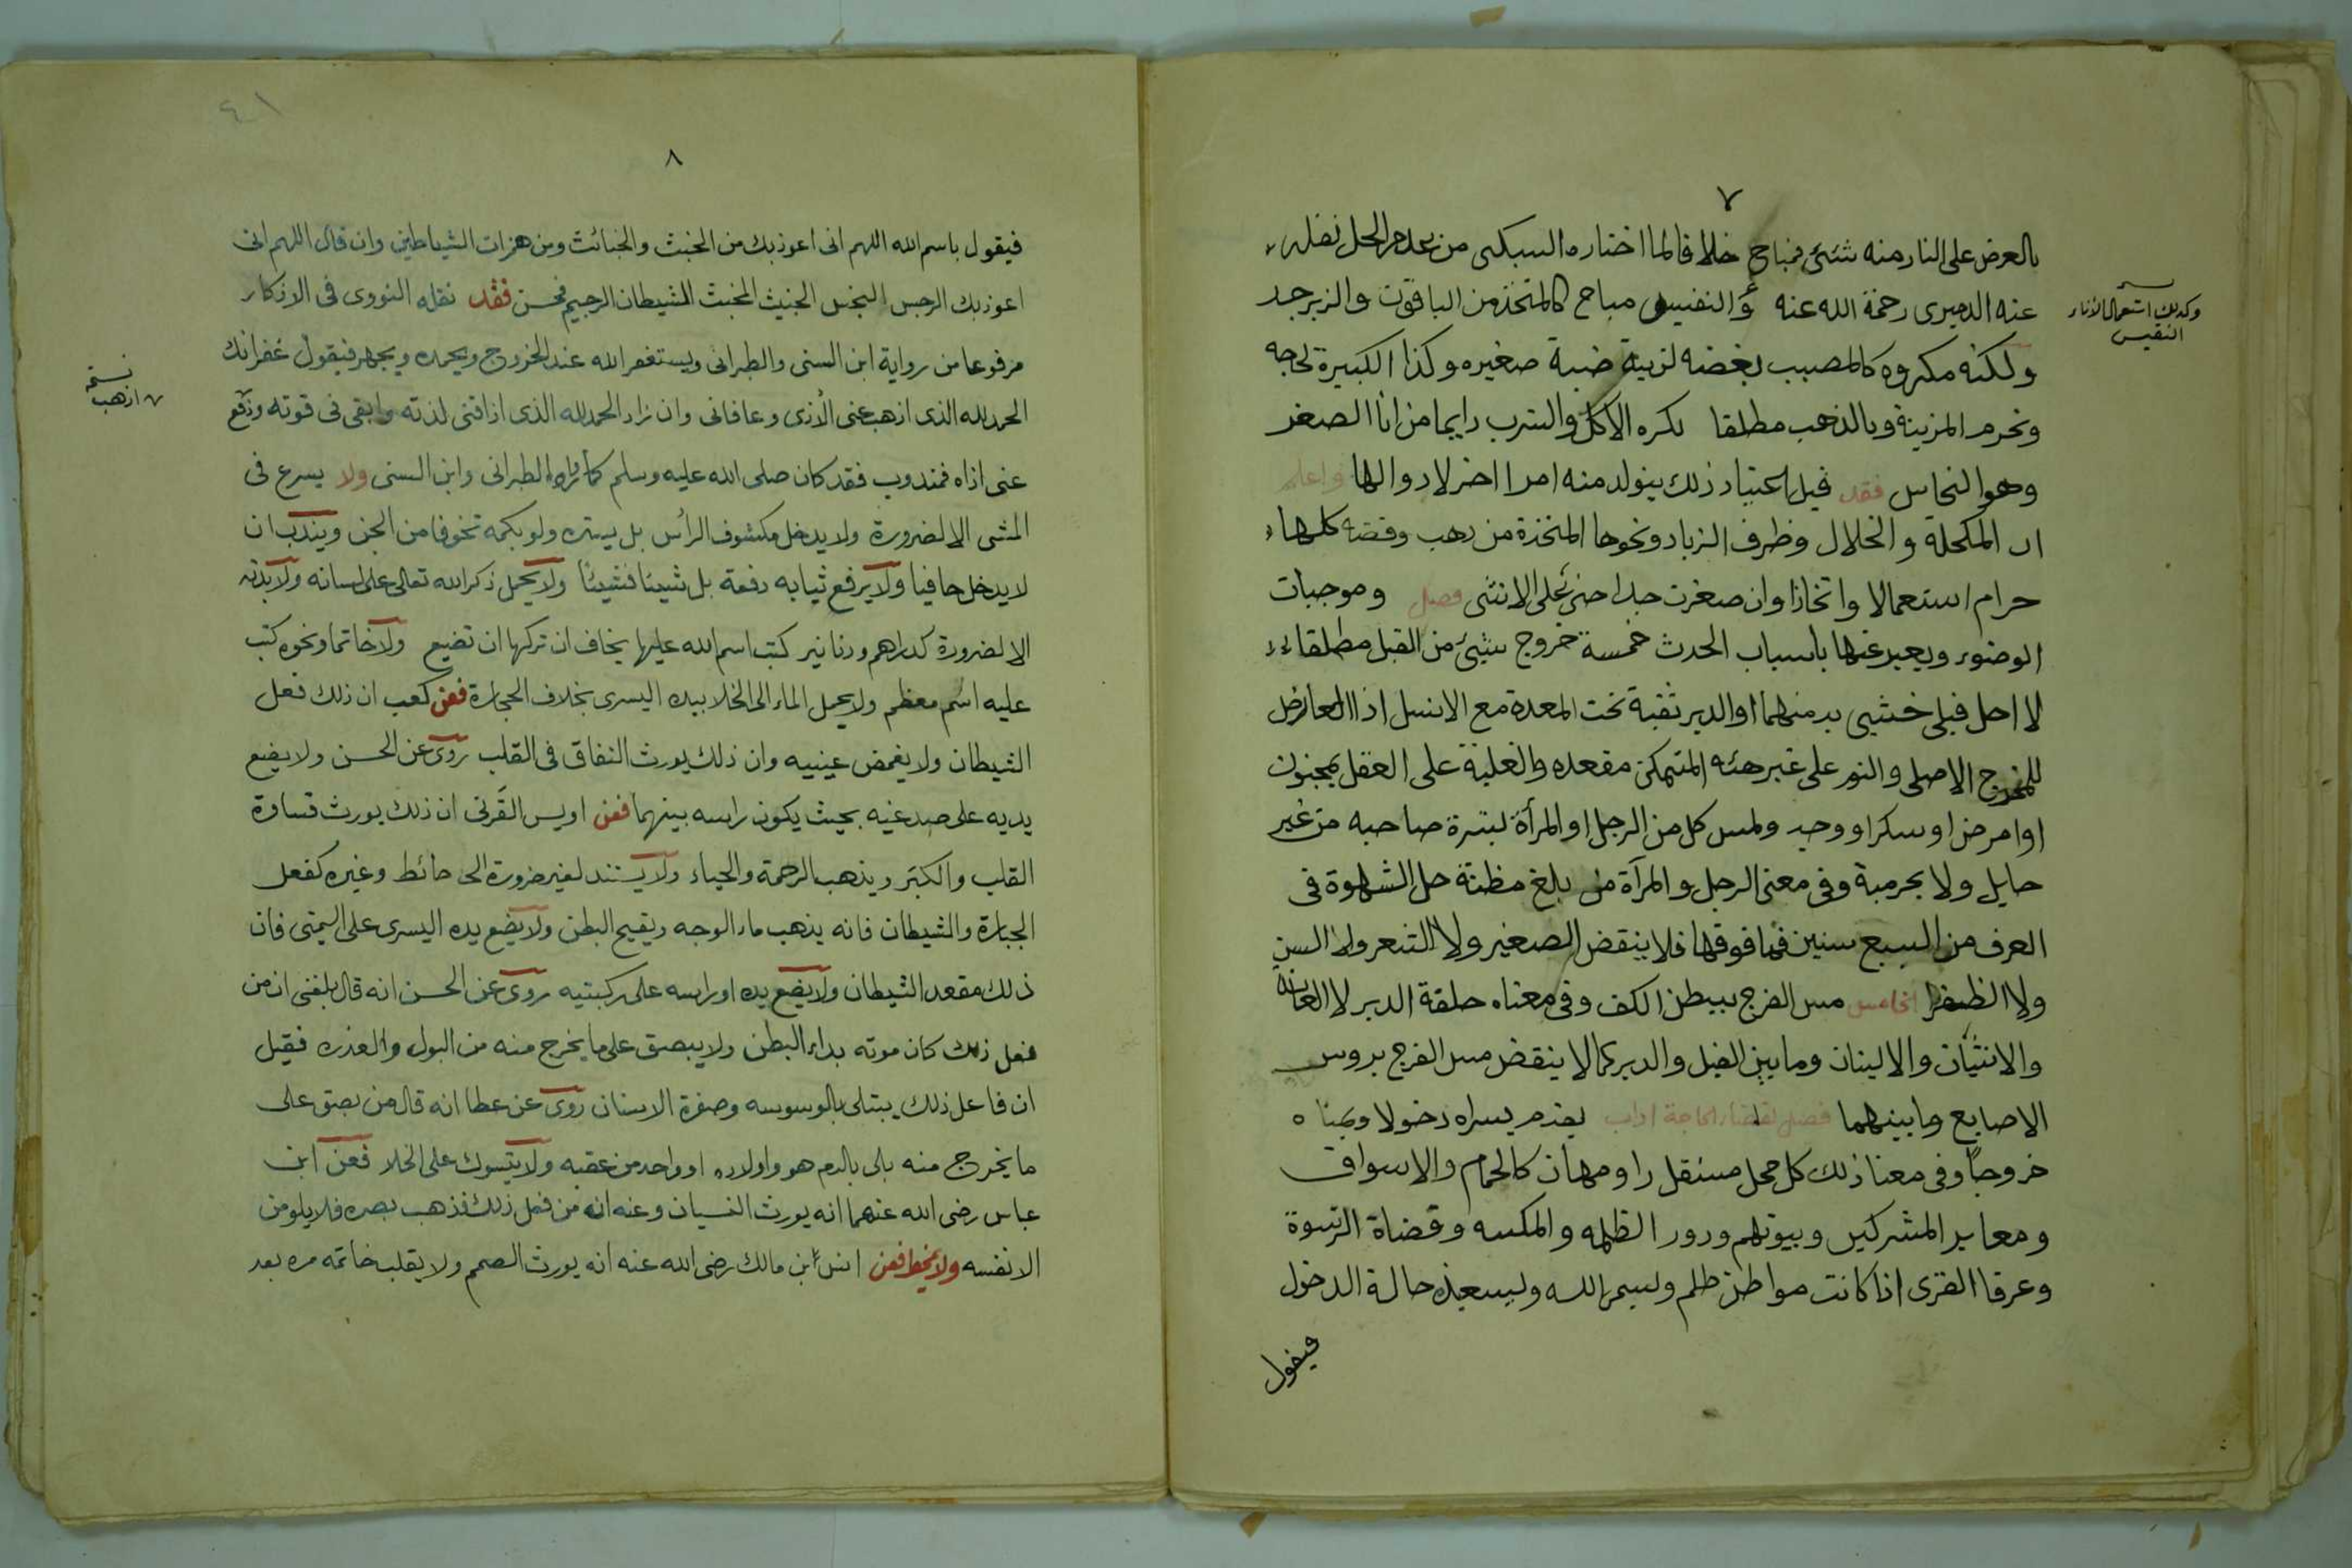 ٧
بالعرض على النار منه شئى فمباح خلافا لما اختاره السبكى من عدم الحل نقله
عنه الدميرى رحمة الله عنه والنفيس مباح كالمتخذ من الياقوت والزبرجد
ولكنه مكروه كالمضبب بفضه لزينة ضبة صغيره وكذا الكبيرة لحاجه
وتحرم المزينة وبالذهب مطلقا يكره الاكل والشرب دايما من انا الصفر
وهو النحاس فقد قيل اعتياد ذلك يتولد منه امرا اضر لا دوا لها واعلم
ان المكحلة والخلال وظرف الزباد ونحوها المتخذة من ذهب وفضه كلها
حرام استعمالا واتخاذا وان صغرت جدا حتى على الانثى فصل وموجبات
الوضوء ويعبر عنها باسباب الحدث خمسة خروج شيئ من القبل مطلقا
لا احل قبلى خنثيى بد منهما او الدبر ثقبة تحت المعدة مع الانسل اذا العارض
للمخرج الاصلى والنوم على غير هئه المتمكن مقعده والغلبة على العقل بجنون
او امرض او سكر او وحيد ولمس كل من الرجل او المرأة لبشرة صاحبه من غير
حايل ولا بحرمية وفى معنى الرجل والمرآة من بلغ مظنة حل الشهوة فى
العرف من السبع سنين فما فوقها فلا ينقض الصغير ولا الشعر ولا السن
ولا الظفر الخامس مس الفرج ببطن الكف وفى معناه حلقة الدبر لا العانة
والانثيان والالينان وما بين القبل والدبر كما لا ينقض مس الفرج بروس
الاصابع وما بينهما فصل لقضاء الحاجة اداب يقدم يسراه دخولا ويمناه
خروجًا وفى معنا ذلك كل محل مستقل را ومهان كالحمام والاسواق
ومعابد المشركين وبيوتهم ودور الظلمه والمكسه وقضاة الرشوة
وعرفا القرى اذا كانت مواطن ظلم وليسم الله وليستعيذ حالة الدخول
فيقول
وكذلك استعمال الأناء
النفيس
٤١
٨
فيقول باسم الله اللهم انى اعوذ بك من الخبث والخبائث ومن همزات الشياطين وان قال اللهم انى
اعوذ بك الرجس النجس الخبيث المخبث الشيطان الرجيم فحسن فقد نقله النووى فى الاذكار
مرفوعا من رواية ابن السنى والطبرانى ويستغفر الله عند الخروج ويحمده ويجهر فيقول غفرانك
الحمد لله الذى اذهب عنى الأذى وعافانى وان زاد الحمد لله الذى اذاقنى لذته وابقى فى قوته ودفع
عنى اذاه فمندوب فقد كان صلى الله عليه وسلم كما رواه الطبرانى وابن السنى ولا يسرع فى
المشى الا لضرورة ولا يدخل مكشوف الرأس بل يستره ولو بكمه تخوفا من الجن ويندب ان
لا يدخل حافيا ولا يرفع ثيابه دفعة بل شيئا فشيئا ولا يحمل ذكر الله تعالى على لسانه ولا بدنه
الا لضرورة كدراهم ودنانير كتب اسم الله عليها يخاف ان تركها ان تضيع ولا خاتما ونحوه كتب
عليه اسم معظم ولا يحمل الماء الى الخلا بيده اليسرى بخلاف الحجارة فعن كعب ان ذلك فعل
الشيطان ولا يغمض عينيه وان ذلك يورث النفاق فى القلب روى عن الحسن ولا يضع
يديه على صدغيه بحيث يكون راسه بينهما فعن اويس القرنى ان ذلك يورث قساوة
القلب والكبر ويذهب الرحمة والحياء ولا يستند لغير ضرورة الى حائط وغيره كفعل
الجبارة والشيطان فانه يذهب ماء الوجه ويقيح البطن ولا يضع يده اليسرى على اليمنى فان
ذلك مقعد الشيطان ولا يضع يده او راسه على ركبتيه روى عن الحسن انه قال بلغنى ان من
فعل ذلك كان موته بداء البطن ولا يبصق على ما يخرج منه من البول والعذره فقيل
ان فاعل ذلك يبتلى بالوسوسه وصفرة الاسنان روى عن عطا انه قال من بصق على
ما يخرج منه بلى بالدم هو واولاده او واحد من عقبه ولا يتسوك على الخلا فعن ابن
عباس رضى الله عنهما انه يورث النسيان وعنه انه من فعل ذلك فذهب بصره فلا يلومن
الا نفسه ولا يتمخط فعن انس ابن مالك رضى الله عنه انه يورث الصمم ولا يقلب خاتمه مره بعد
نسخه
اذهب